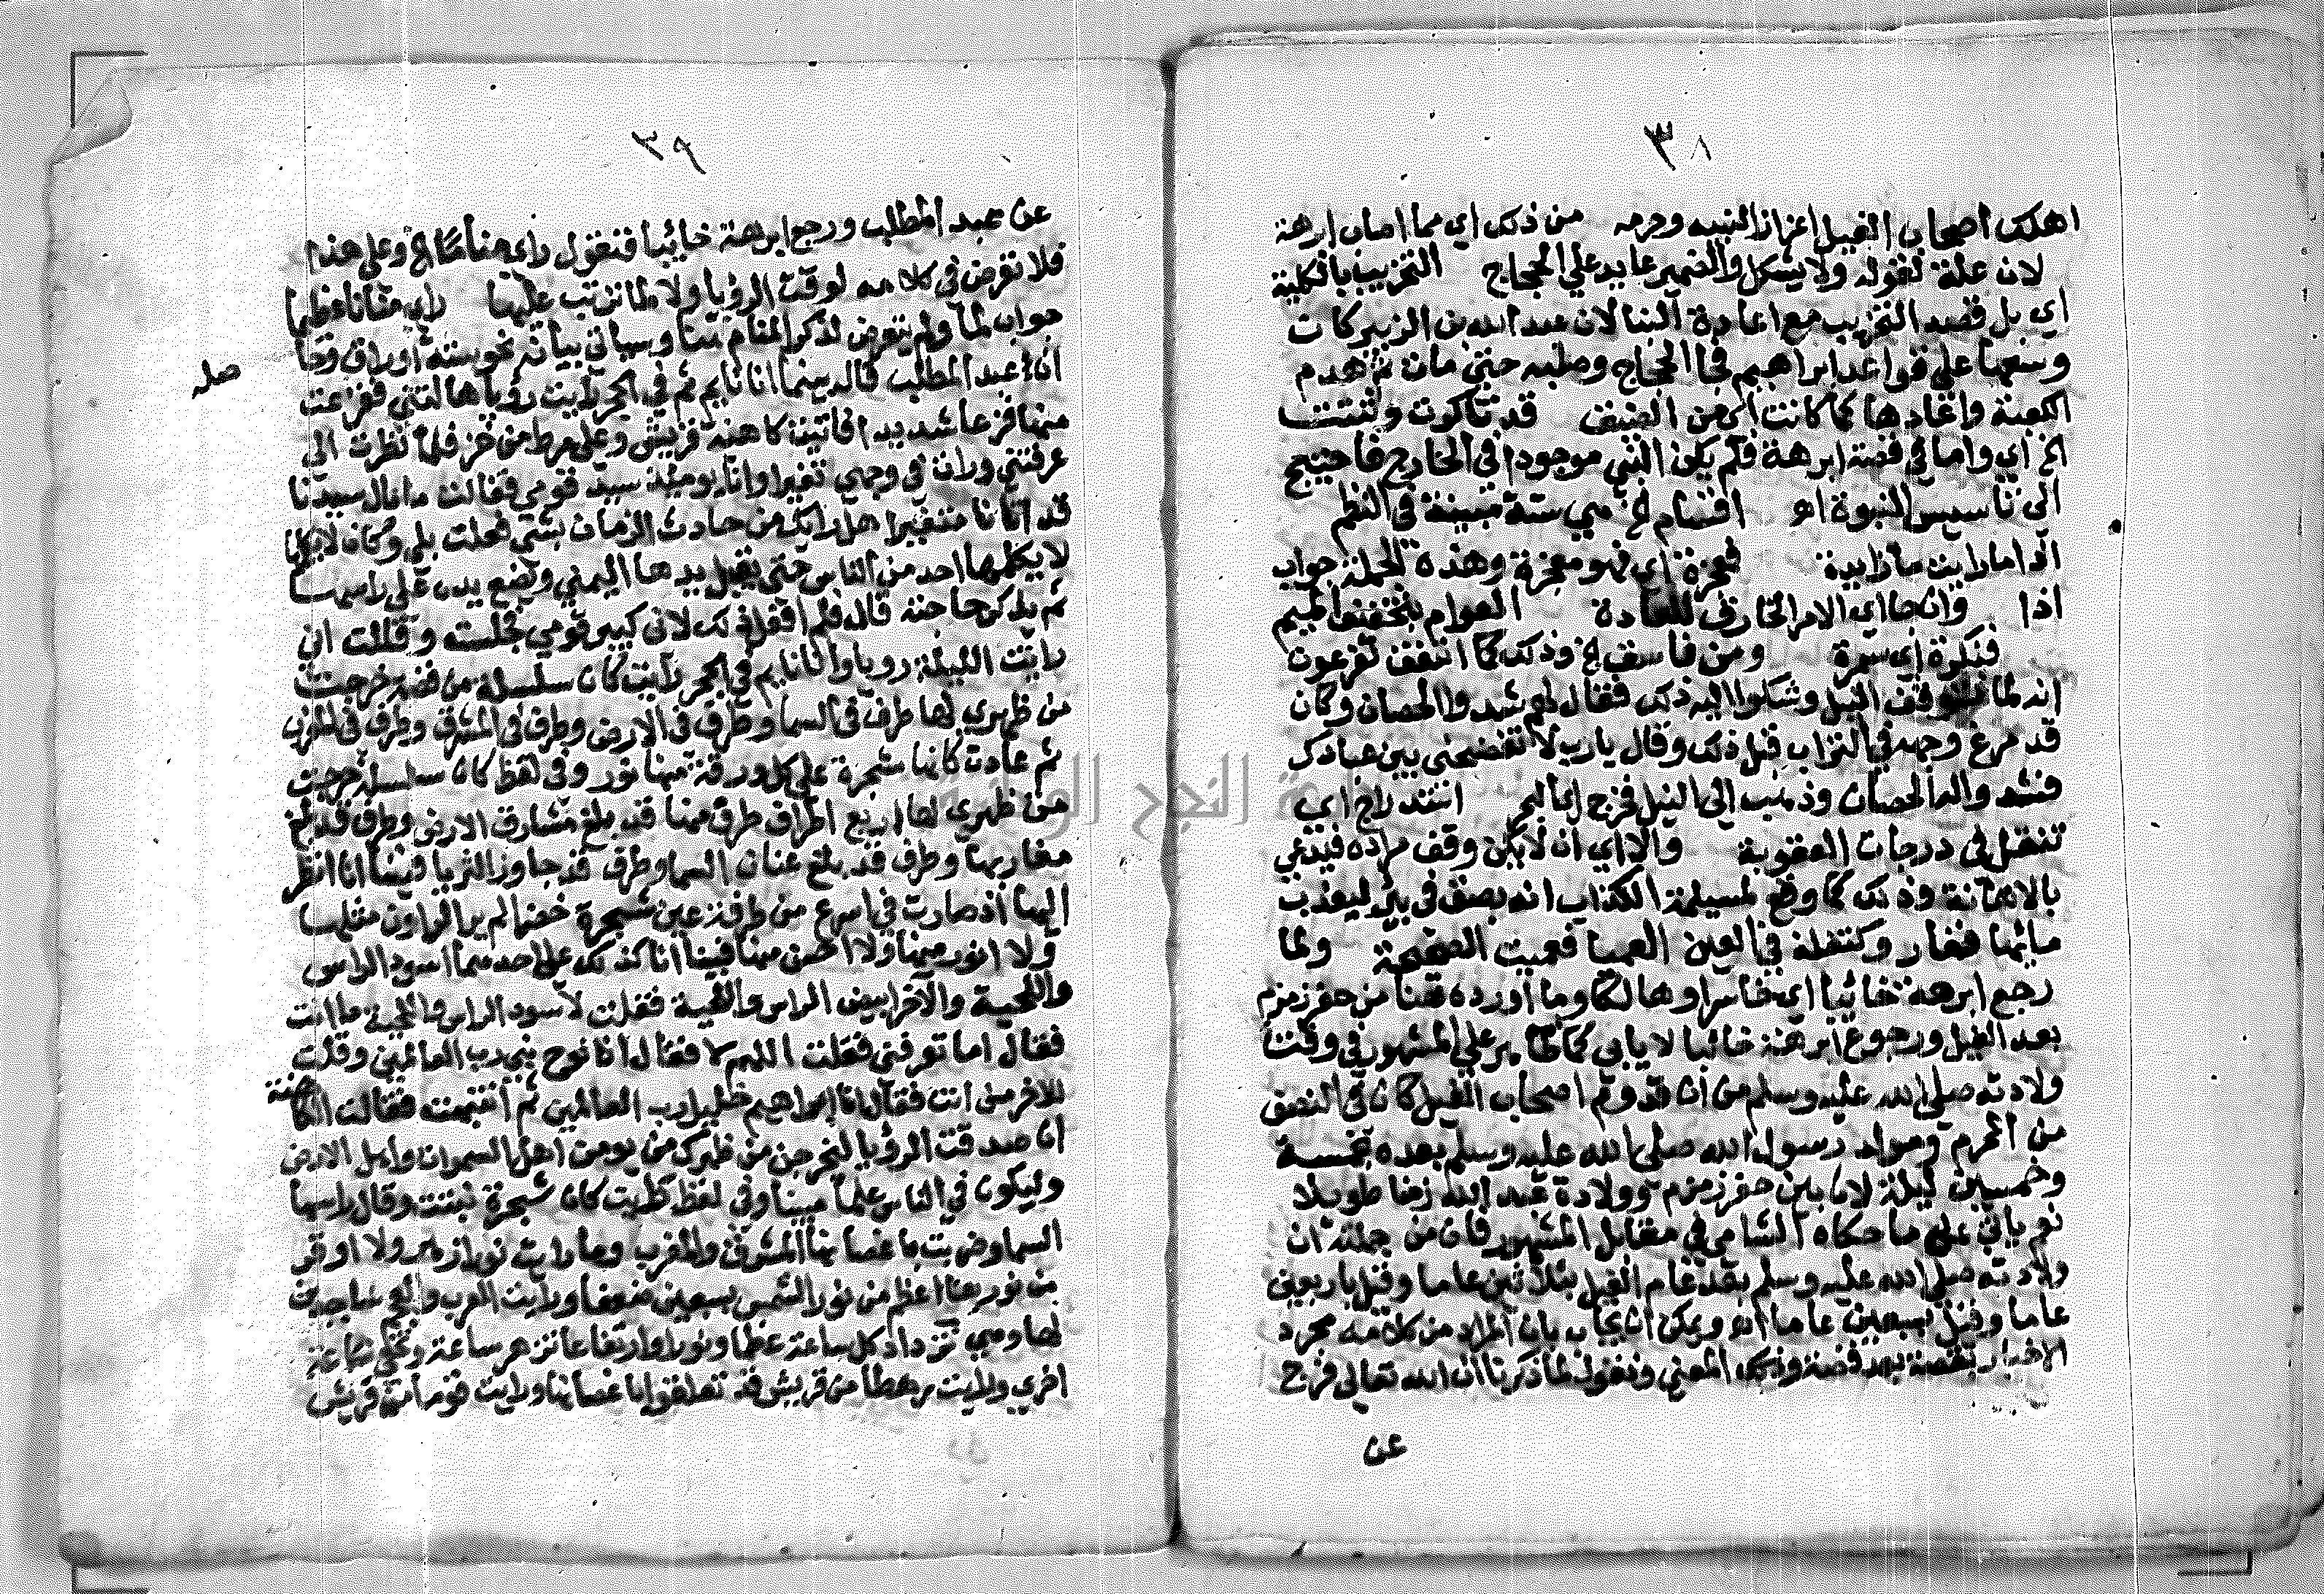 ٣٨
اهلك اصحاب الفيل اعزازا لنبيه وحرمه من ذلك اي مما اصاب ابرهة
لان علة لقوله ولا يشكل والضمير عايد علي الحجاج التخريب بالكلية
اي بل قصد التخريب مع اعادة البنا لان عبد الله بن الزبير كان
وسعها علي قواعد ابراهيم فجا الحجاج وصلبه حتي مات ثم هدم
الكعبة واعادها كما كانت اي من الضيق قد تاكدت وثبتت
الخ اي واما في قصة ابرهة فلم يكن النبي موجودا في الخارج فاحتيج
الى تاسيس النبوة اهـ اقسام الخ هي ستة مبينة في النظم
اذا ما رايت ما رايته فمعجزة اي فهو معجزة وهذه الجملة جواب
اذا وان جا اي الامر الخارق للعادة العوام بتخفيف الميم
فنكرة اي سمة ومن فاسق الخ وذلك كما اتفق لفرعون
انه لما وقف النيل وشكوا اليه ذلك فقال لهم شدوا الحصان وكان
قد مرغ وجهه في التراب قبل ذلك وقال يارب لا تفضحني بين عبادك
فشدوا له الحصان وذهب الى النيل فخرج له البحر استدراج اي
تنقل في درجات العقوبة والا اي ان لا يكن وقف مراده فيدعي
بالاهانة وذلك كما وقع لمسيلمة الكذاب انه بصق في بئر ليعذب
مائها فغار وكتفله في العين العميا فعميت الصحيحة ولما
رجع ابرهة خائبا اي خاسرا وهالكا وما اورده هنا من حفر زمزم
بعد الفيل ورجوع ابرهة خائبا لا ياتي كما لا على المشهور في وقت
ولادته صلى الله عليه وسلم من ان قدوم اصحاب الفيل كان في النصف
من المحرم ومولد رسول الله صلى الله عليه وسلم بعده بخمسة
وخمسين ليلة لان بين حفر زمزم وولادة عبد الله زمنا طويلا
نعم ياتي على ما حكاه الشامي في مقابل المشهور فان من جملته ان
ولادته صلى الله عليه وسلم بعد عام الفيل بثلاثين عاما وقيل باربعين
عاما وقيل بسبعين عاما اهـ ويمكن ان يجاب بان المراد من كلامه مجرد
الاخبار بقصة بعد قصة وذلك المعني ونقول لما ذكرنا ان الله تعالى فرج
عن
٣٩
عن عبد المطلب ورجع ابرهة خائبا فنقول راى مناما الخ وعلى هذا
فلا تعرض في كلامه لوقت الرؤيا ولا لما ترتب عليها راى مناما عظيما
جواب لما ولم يتعرض لذكر المنام هنا وسياتي بيانه نحو ستة اوراق وجا
ان عبد المطلب قال بينما انا نايم في الحجر رايت رؤيا هالتني ففزعت
صله
منها فزعا شديدا فاتيت كاهنة قريش وعلي مرط من خز فلما نظرت الي
عرفتي ورات في وجهي تغيرا وانا يومئذ سيد قومي فقالت ما بال سيدنا
قد اتانا متغيرا هل رابك من حادث الزمان شي فقلت بلى وكان
لا يكلمها احد من الناس حتى يقبل يدها اليمني ويضع يده على راسها
ثم يذكر حاجته قال فلم افعل ذلك لاني كبير قومي فجلست وقلت اني
رايت الليلة رويا وانا نايم في الحجر رايت كان سلسلة من فضة خرجت
من ظهري لها طرف في السما وطرف في الارض وطرف في المشرق وطرف في المغرب
ثم عادت كانها شجرة على كل ورقة منها نور وفي لفظ كان سلسلة خرجت
من ظهري لها اربع اطراف طرف منها قد بلغ مشارق الارض وطرف قد بلغ
مغاربها وطرف قد بلغ عنان السما وطرف قد جاوز الثريا فبينا انا انظر
اليها اذ صارت في اسرع من طرفة عين شجرة خضرا لم ير الراون مثلها
ولا انور منها ولا احسن منها فبينا انا كذلك على احدهما اسود الراس
واللحية والاخر ابيض الراس واللحية فقلت لاسود الراس واللحية ما انت
فقال اما تعرفني فقلت اللهم لا فقال انا نوح نبي رب العالمين وقلت
للاخر من انت فقال انا ابراهيم خليل رب العالمين ثم انتبهت فقالت الكاهنة
ان صدقت الرؤيا ليخرجن من ظهرك من يومن به اهل السموات واهل الارض
وليكون في الناس علما مبينا وفي لفظ رايت كان شجرة نبتت وقال راسها
السما وضربت باغصانها المشرق والمغرب وما رايت نورا ازهر ولا اوقر
من نورها اعظم من نور الشمس بسبعين ضعفا ورايت العرب والعجم ساجدين
لها وهي تزداد كل ساعة عظما ونورا وارتفاعا تزهر ساعة وتخفي ساعة
اخري ورايت رهطا من قريش قد تعلقوا باغصانها ورايت قوما من قريش